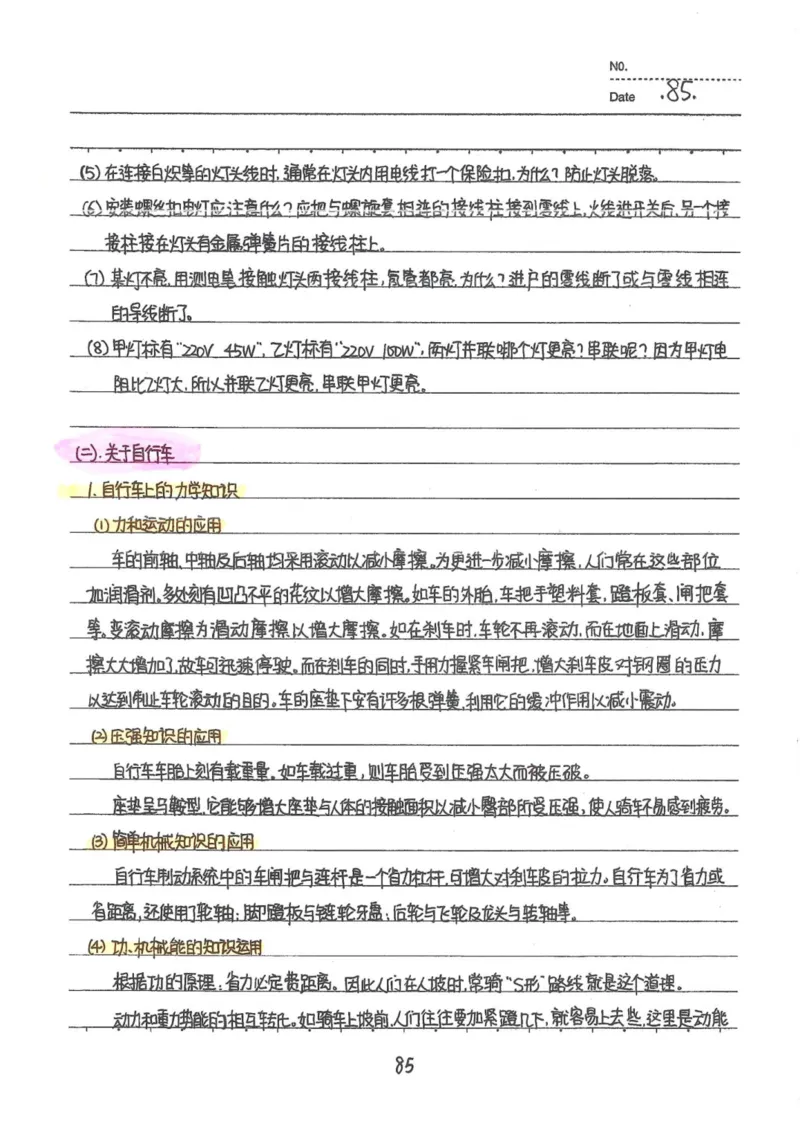 NO.
Date .85.
(5)在连接白炽等的灯头线时,通常在灯头内用电线打一个保险扣,为什么?防止灯头脱落。
(6)安装螺丝扣电灯应注意什么?应把与螺旋套相连的接线柱接到零线上,火线进开关后,另一个接
接柱接在灯头有金属弹簧片的接线柱上。
(7)某灯不亮,用测电笔接触灯头两接线柱,氖管都亮,为什么?进户的零线断了或与零线相连
的导线断了。
(8)甲灯标有"220V 45W",乙灯标有"220V 100W",两灯并联哪个灯更亮?串联呢?因为甲灯电
阻比乙灯大,所以并联乙灯更亮,串联甲灯更亮。
(二).关于自行车
1.自行车上的力学知识
(1)力和运动的应用
车的前轴、中轴及后轴均采用滚动以减小摩擦。为更进一步减小摩擦,人们常在这些部位
加润滑剂。多处刻有凹凸不平的花纹以增大摩擦。如车的外胎,车把手塑料套,蹬板套、闸把套
等。变滚动摩擦为滑动摩擦以增大摩擦。如在刹车时,车轮不再滚动,而在地面上滑动,摩
擦大大增加了,故车可迅速停驶。而在刹车的同时,手用力握紧车闸把,增大刹车皮对钢圈的压力
以达到制止车轮滚动的目的。车的座垫下安有许多根弹簧,利用它的缓冲作用以减小震动。
(2)压强知识的应用
自行车车胎上刻有载重量。如车载过重,则车胎受到压强太大而被压破。
座垫呈马鞍型,它能够增大座垫与人体的接触面积以减小臀部所受压强,使人骑车不易感到疲劳。
(3)简单机械知识的应用
自行车制动系统中的车闸把与连杆是一个省力杠杆,可增大对刹车皮的拉力。自行车为了省力或
省距离,还使用了轮轴:脚蹬板与链轮牙盘;后轮与飞轮及龙头与转轴等。
(4)功、机械能的知识运用
根据功的原理:省力必定费距离。因此人们在人坡时,常骑"S形"路线就是这个道理。
动力和重力势能的相互转化。如骑车上坡前,人们往往要加紧蹬几下,就容易上去些,这里是动能
85